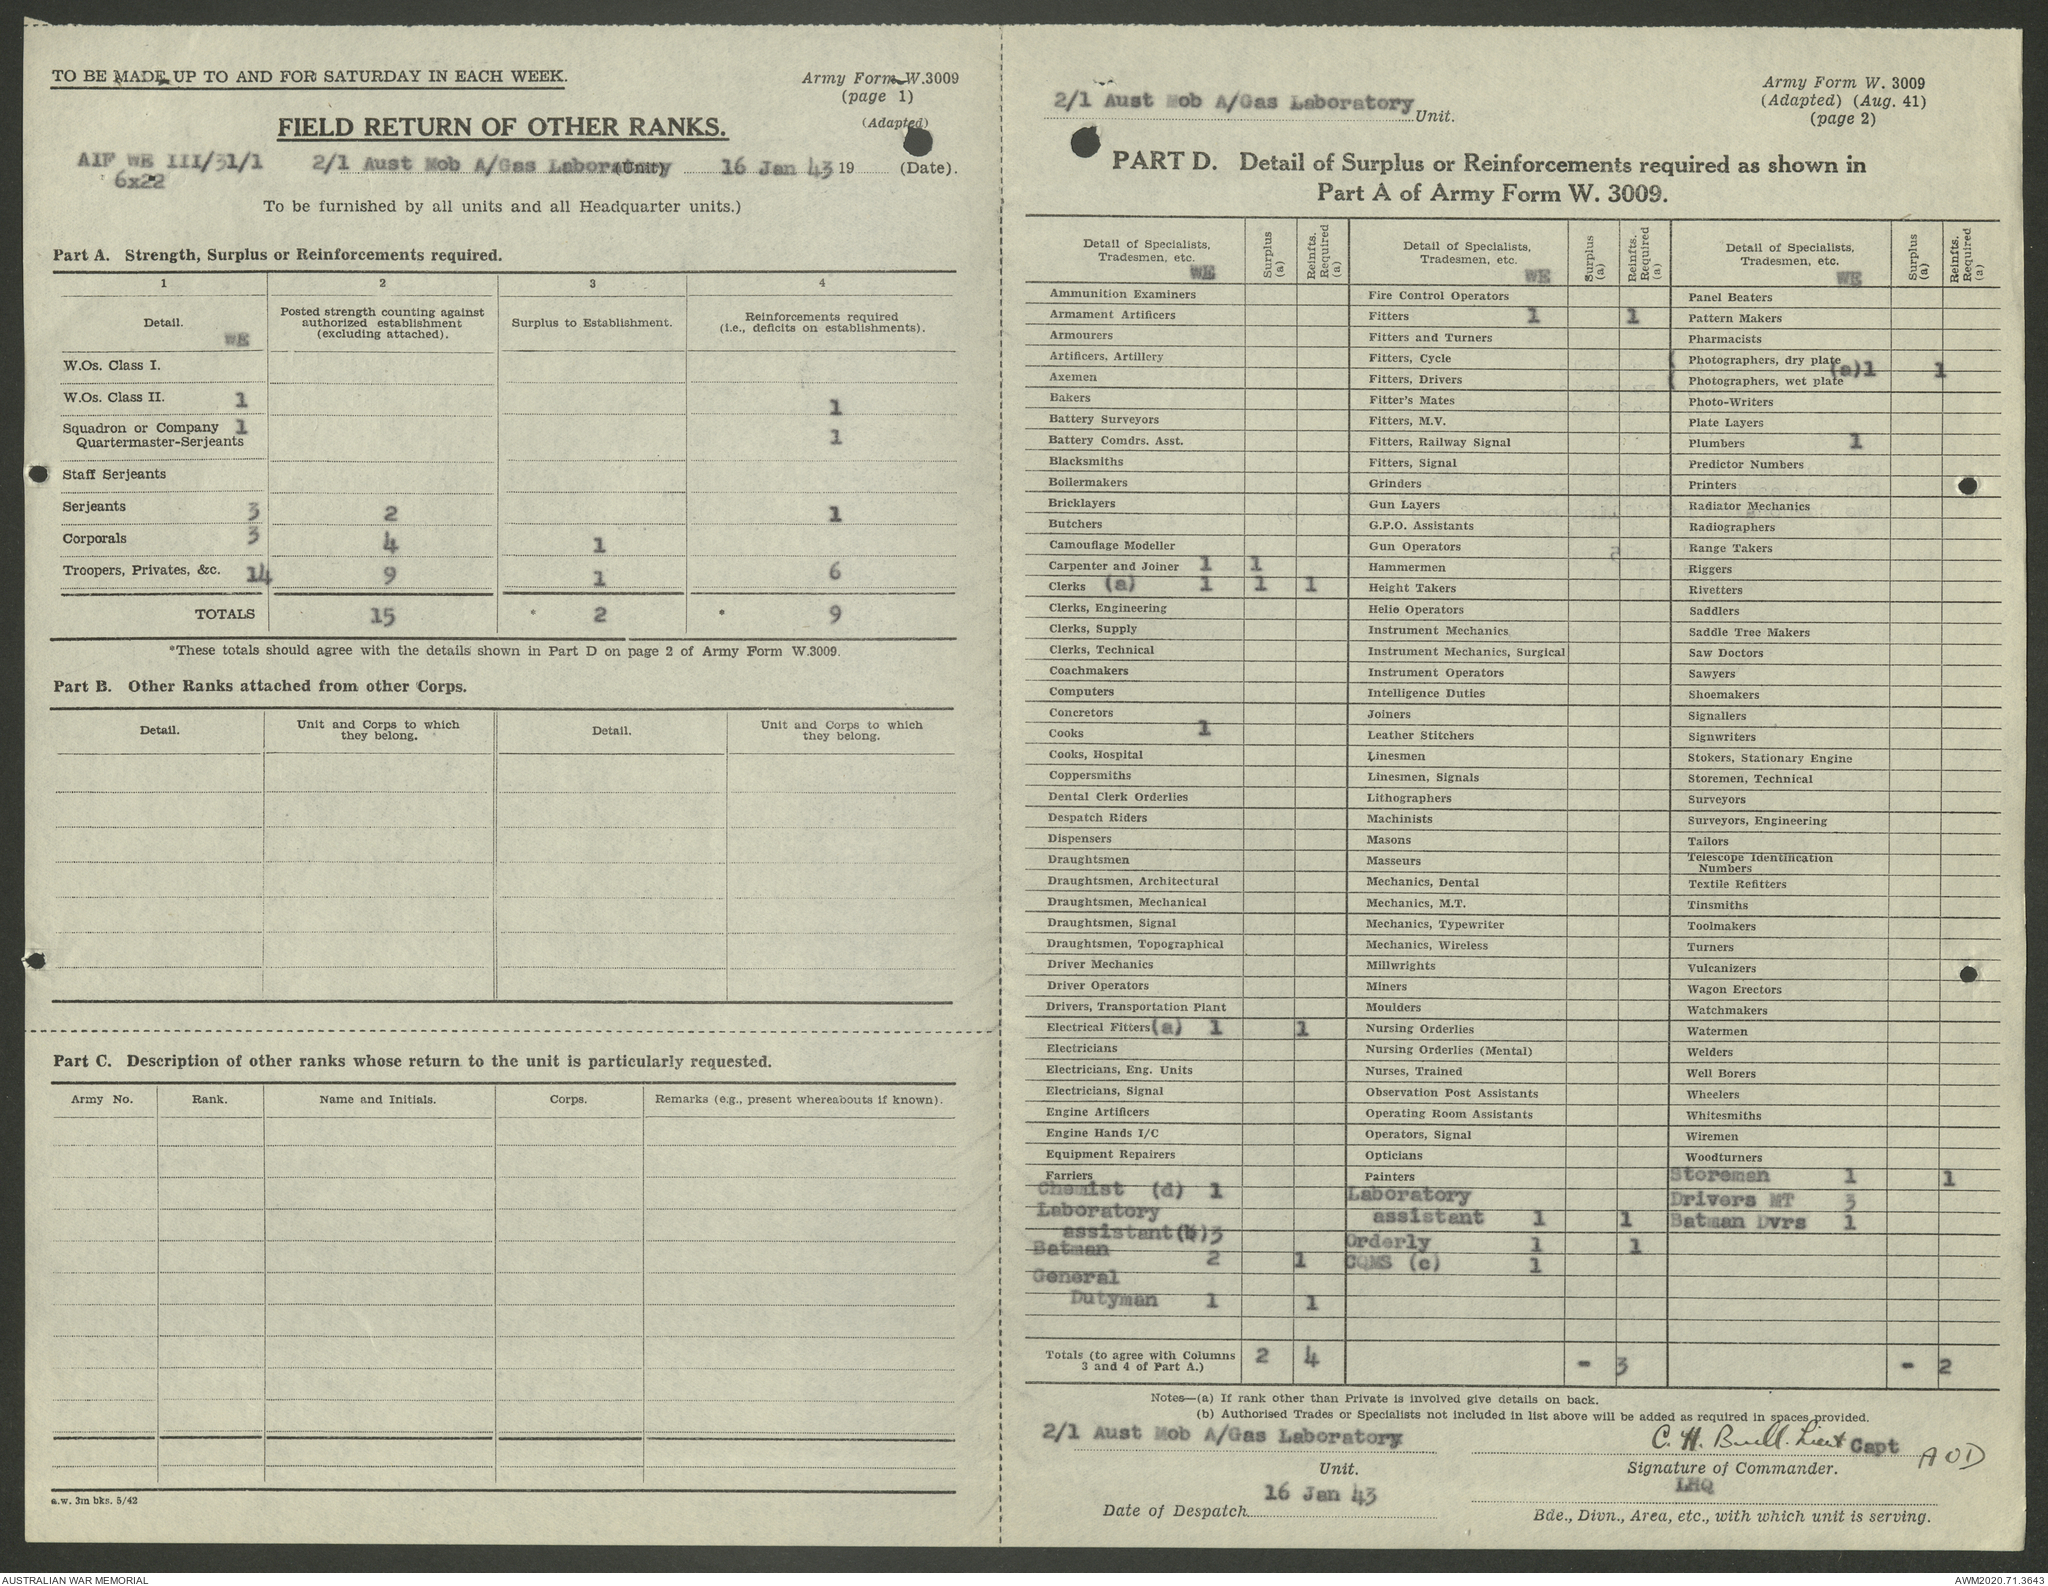 TO BE MADE UP TO AND FOR SATURDAY IN EACH WEEK.
Army Form W.3009
(page 1)
(Adapted)
FIELD RETURN OF OTHER RANKS.
AIF WE III/31/1 2/1 Aust Mob A/Gas Laboratory (Unit) 16 Jan 43 19 (Date).
6x22
To be furnished by all units and all Headquarter units.)
Part A. Strength, Surplus or Reinforcements required.
1 2 3 4
Detail. WE
Posted strength counting against authorized establishment (excluding attached).
Surplus to Establishment.
Reinforcements required (i.e., deficits on establishments).
W.Os. Class I.
W.Os. Class II. 1 1
Squadron or Company 1 1
Quartermaster-Serjeants
Staff Serjeants
Serjeants 3 2 1
Corporals 3 4 1
Troopers, Privates, &c. 14 9 1 6
TOTALS 15 * 2 * 9
*These totals should agree with the details shown in Part D on page 2 of Army Form W.3009.
Part B. Other Ranks attached from other Corps.
Detail. Unit and Corps to which they belong. Detail. Unit and Corps to which they belong.
Part C. Description of other ranks whose return to the unit is particularly requested.
Army No. Rank. Name and Initials. Corps. Remarks (e.g., present whereabouts if known).
a.w. 3m bks. 5/42
2/1 Aust Mob A/Gas Laboratory Unit.
Army Form W. 3009
(Adapted) (Aug. 41)
(page 2)
PART D. Detail of Surplus or Reinforcements required as shown in
Part A of Army Form W. 3009.
Detail of Specialists, Tradesmen, etc. WE
Surplus (a)
Reinfts. Required (a)
Ammunition Examiners
Armament Artificers
Armourers
Artificers, Artillery
Axemen
Bakers
Battery Surveyors
Battery Comdrs. Asst.
Blacksmiths
Boilermakers
Bricklayers
Butchers
Camouflage Modeller
Carpenter and Joiner 1 1
Clerks (a) 1 1 1
Clerks, Engineering
Clerks, Supply
Clerks, Technical
Coachmakers
Computers
Concretors
Cooks 1
Cooks, Hospital
Coppersmiths
Dental Clerk Orderlies
Despatch Riders
Dispensers
Draughtsmen
Draughtsmen, Architectural
Draughtsmen, Mechanical
Draughtsmen, Signal
Draughtsmen, Topographical
Driver Mechanics
Driver Operators
Drivers, Transportation Plant
Electrical Fitters (a) 1 1
Electricians
Electricians, Eng. Units
Electricians, Signal
Engine Artificers
Engine Hands I/C
Equipment Repairers
Farriers
Chemist (d) 1
Laboratory
assistant(b)3
Batman 2 1
General
Dutyman 1 1
Detail of Specialists, Tradesmen, etc. WE
Surplus (a)
Reinfts. Required (a)
Fire Control Operators
Fitters 1 1
Fitters and Turners
Fitters, Cycle
Fitters, Drivers
Fitter's Mates
Fitters, M.V.
Fitters, Railway Signal
Fitters, Signal
Grinders
Gun Layers
G.P.O. Assistants
Gun Operators
Hammermen
Height Takers
Helio Operators
Instrument Mechanics
Instrument Mechanics, Surgical
Instrument Operators
Intelligence Duties
Joiners
Leather Stitchers
Linesmen
Linesmen, Signals
Lithographers
Machinists
Masons
Masseurs
Mechanics, Dental
Mechanics, M.T.
Mechanics, Typewriter
Mechanics, Wireless
Millwrights
Miners
Moulders
Nursing Orderlies
Nursing Orderlies (Mental)
Nurses, Trained
Observation Post Assistants
Operating Room Assistants
Operators, Signal
Opticians
Painters
Laboratory
assistant 1 1
Orderly 1 1
CQMS (c) 1
Detail of Specialists, Tradesmen, etc. WE
Surplus (a)
Reinfts. Required (a)
Panel Beaters
Pattern Makers
Pharmacists
Photographers, dry plate
(a)1 1
Photographers, wet plate
Photo-Writers
Plate Layers
Plumbers 1
Predictor Numbers
Printers
Radiator Mechanics
Radiographers
Range Takers
Riggers
Rivetters
Saddlers
Saddle Tree Makers
Saw Doctors
Sawyers
Shoemakers
Signallers
Signwriters
Stokers, Stationary Engine
Storemen, Technical
Surveyors
Surveyors, Engineering
Tailors
Telescope Identification
Numbers
Textile Refitters
Tinsmiths
Toolmakers
Turners
Vulcanizers
Wagon Erectors
Watchmakers
Watermen
Welders
Well Borers
Wheelers
Whitesmiths
Wiremen
Woodturners
Storeman 1 1
Drivers MT 3
Batman Dvrs 1
Totals (to agree with Columns 3 and 4 of Part A.) 2 4 - 3 - 2
Notes—(a) If rank other than Private is involved give details on back.
(b) Authorised Trades or Specialists not included in list above will be added as required in spaces provided.
2/1 Aust Mob A/Gas Laboratory
Unit.
C. H. Buell. Lieut Capt AOD
Signature of Commander.
16 Jan 43
Date of Despatch
LHQ
Bde., Divn., Area, etc., with which unit is serving.
AUSTRALIAN WAR MEMORIAL
AWM2020.71.3643